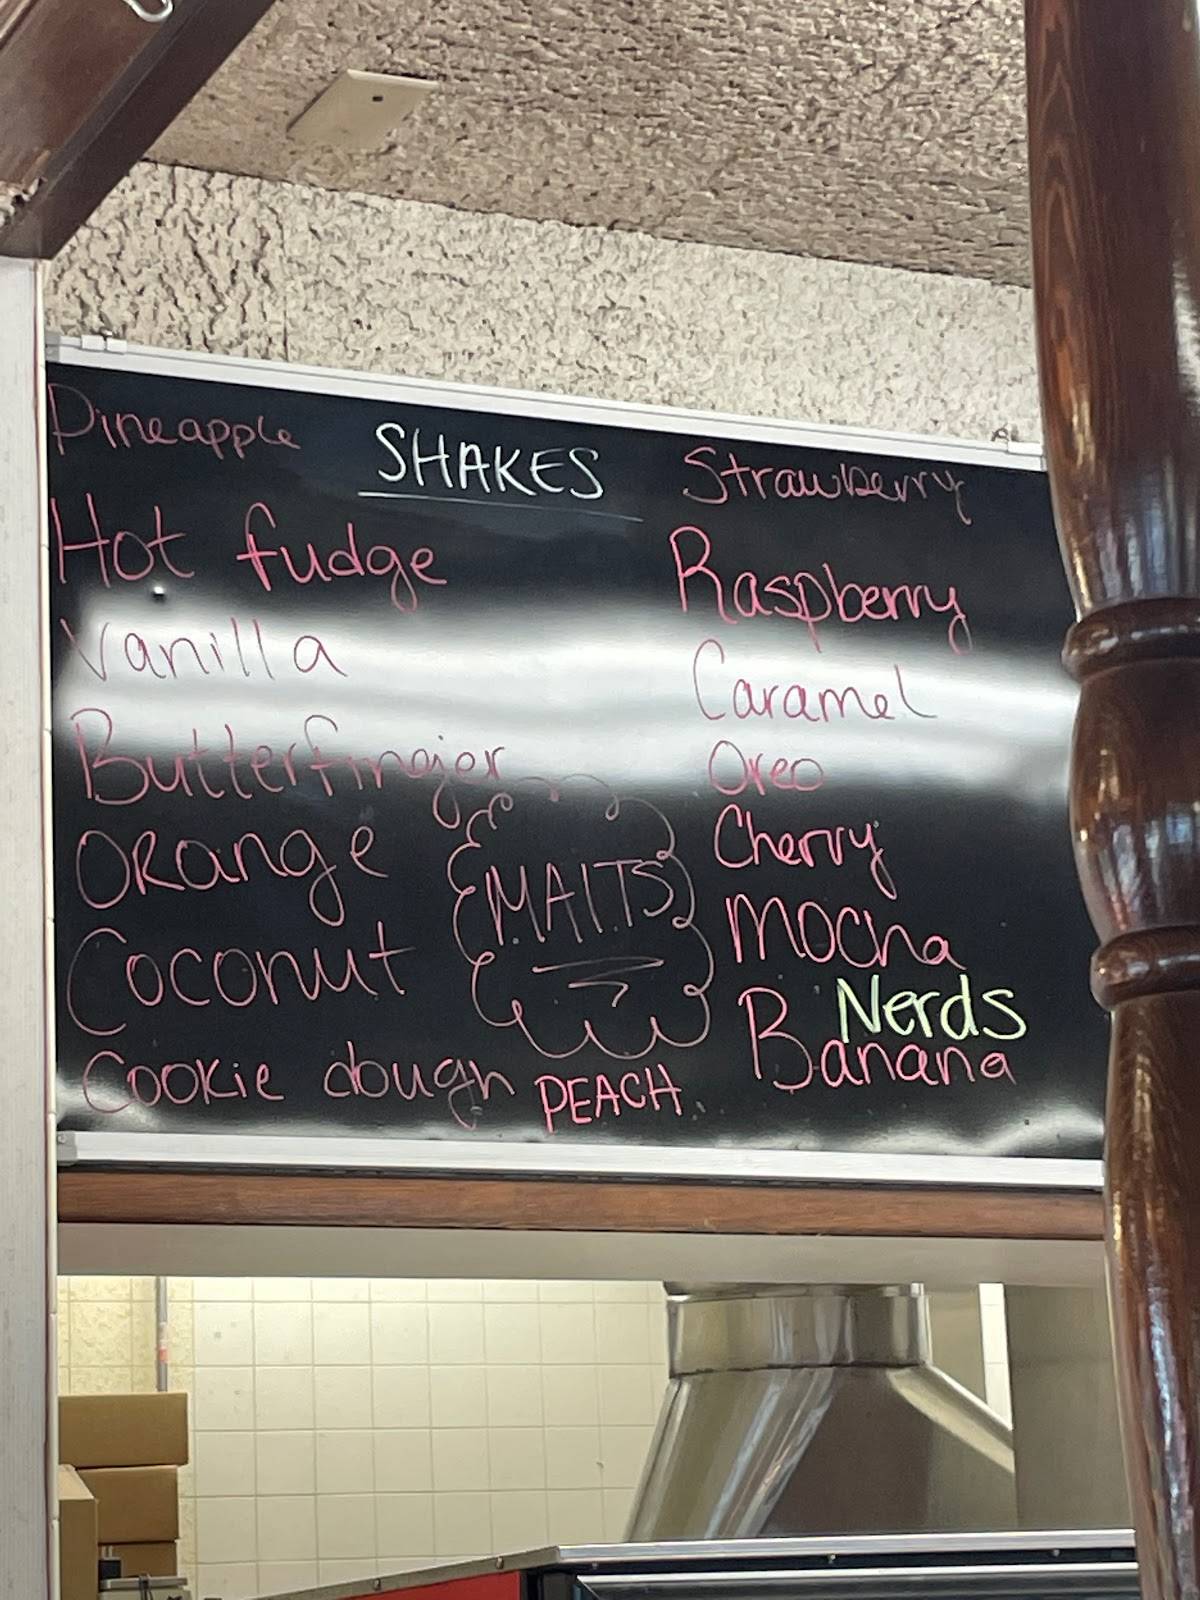 SHAKES
Pineapple
Hot fudge
Vanilla
Butterfinger
ORange
Coconut
Cookie dough
MAlTS
PEACH
Strawberry
Raspberry
Caramel
Oreo
Cherry
Mocha
Nerds
Banana